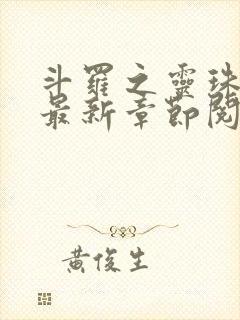 斗羅之靈珠
最新章節閱
黃俊生